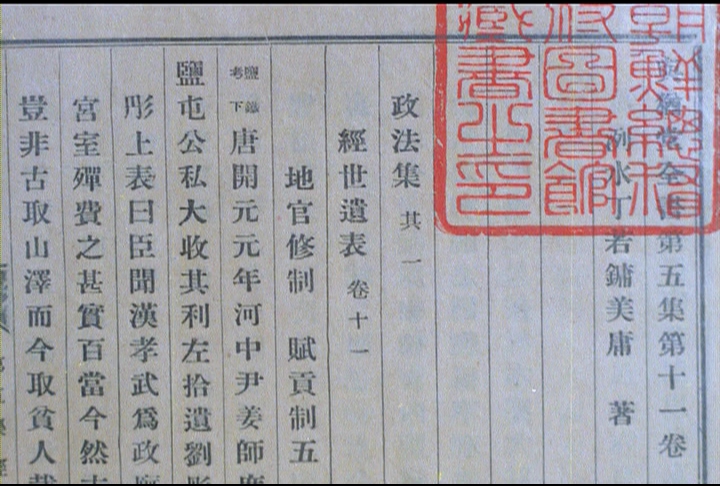 朝鮮總督
府圖書館
藏書之印
與猶堂全書第五集第十一卷
洌水丁若鏞美庸 著
政法集 其一
經世遺表 卷十一
地官修制 賦貢制五
鹽鐵考下 唐開元元年河中尹姜師度
鹽屯公私大收其利左拾遺劉彤
彤上表曰臣聞漢孝武爲政
宮室殫費之甚實百當今然古
豈非古取山澤而今取貧人哉